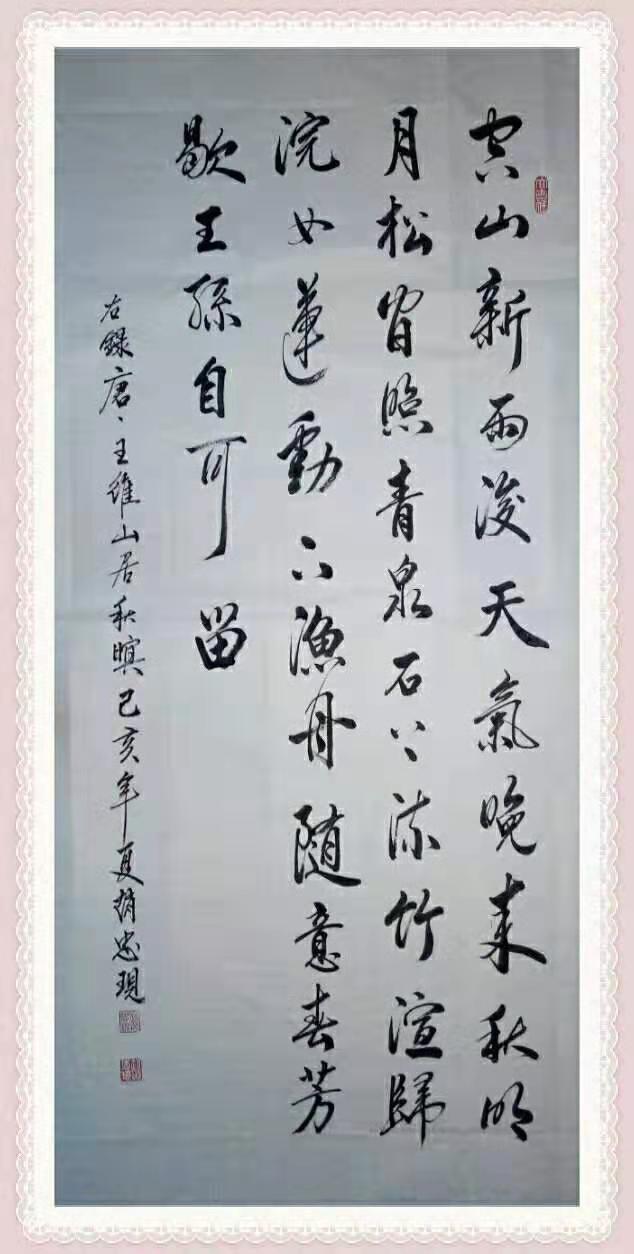 空山新雨後天氣晚来秋明
月松間照青泉石上流竹渲歸
浣女蓮動下漁舟随意春芳
歇王孫自可留
右録唐、王維山居秋暝己亥年夏趙忠現